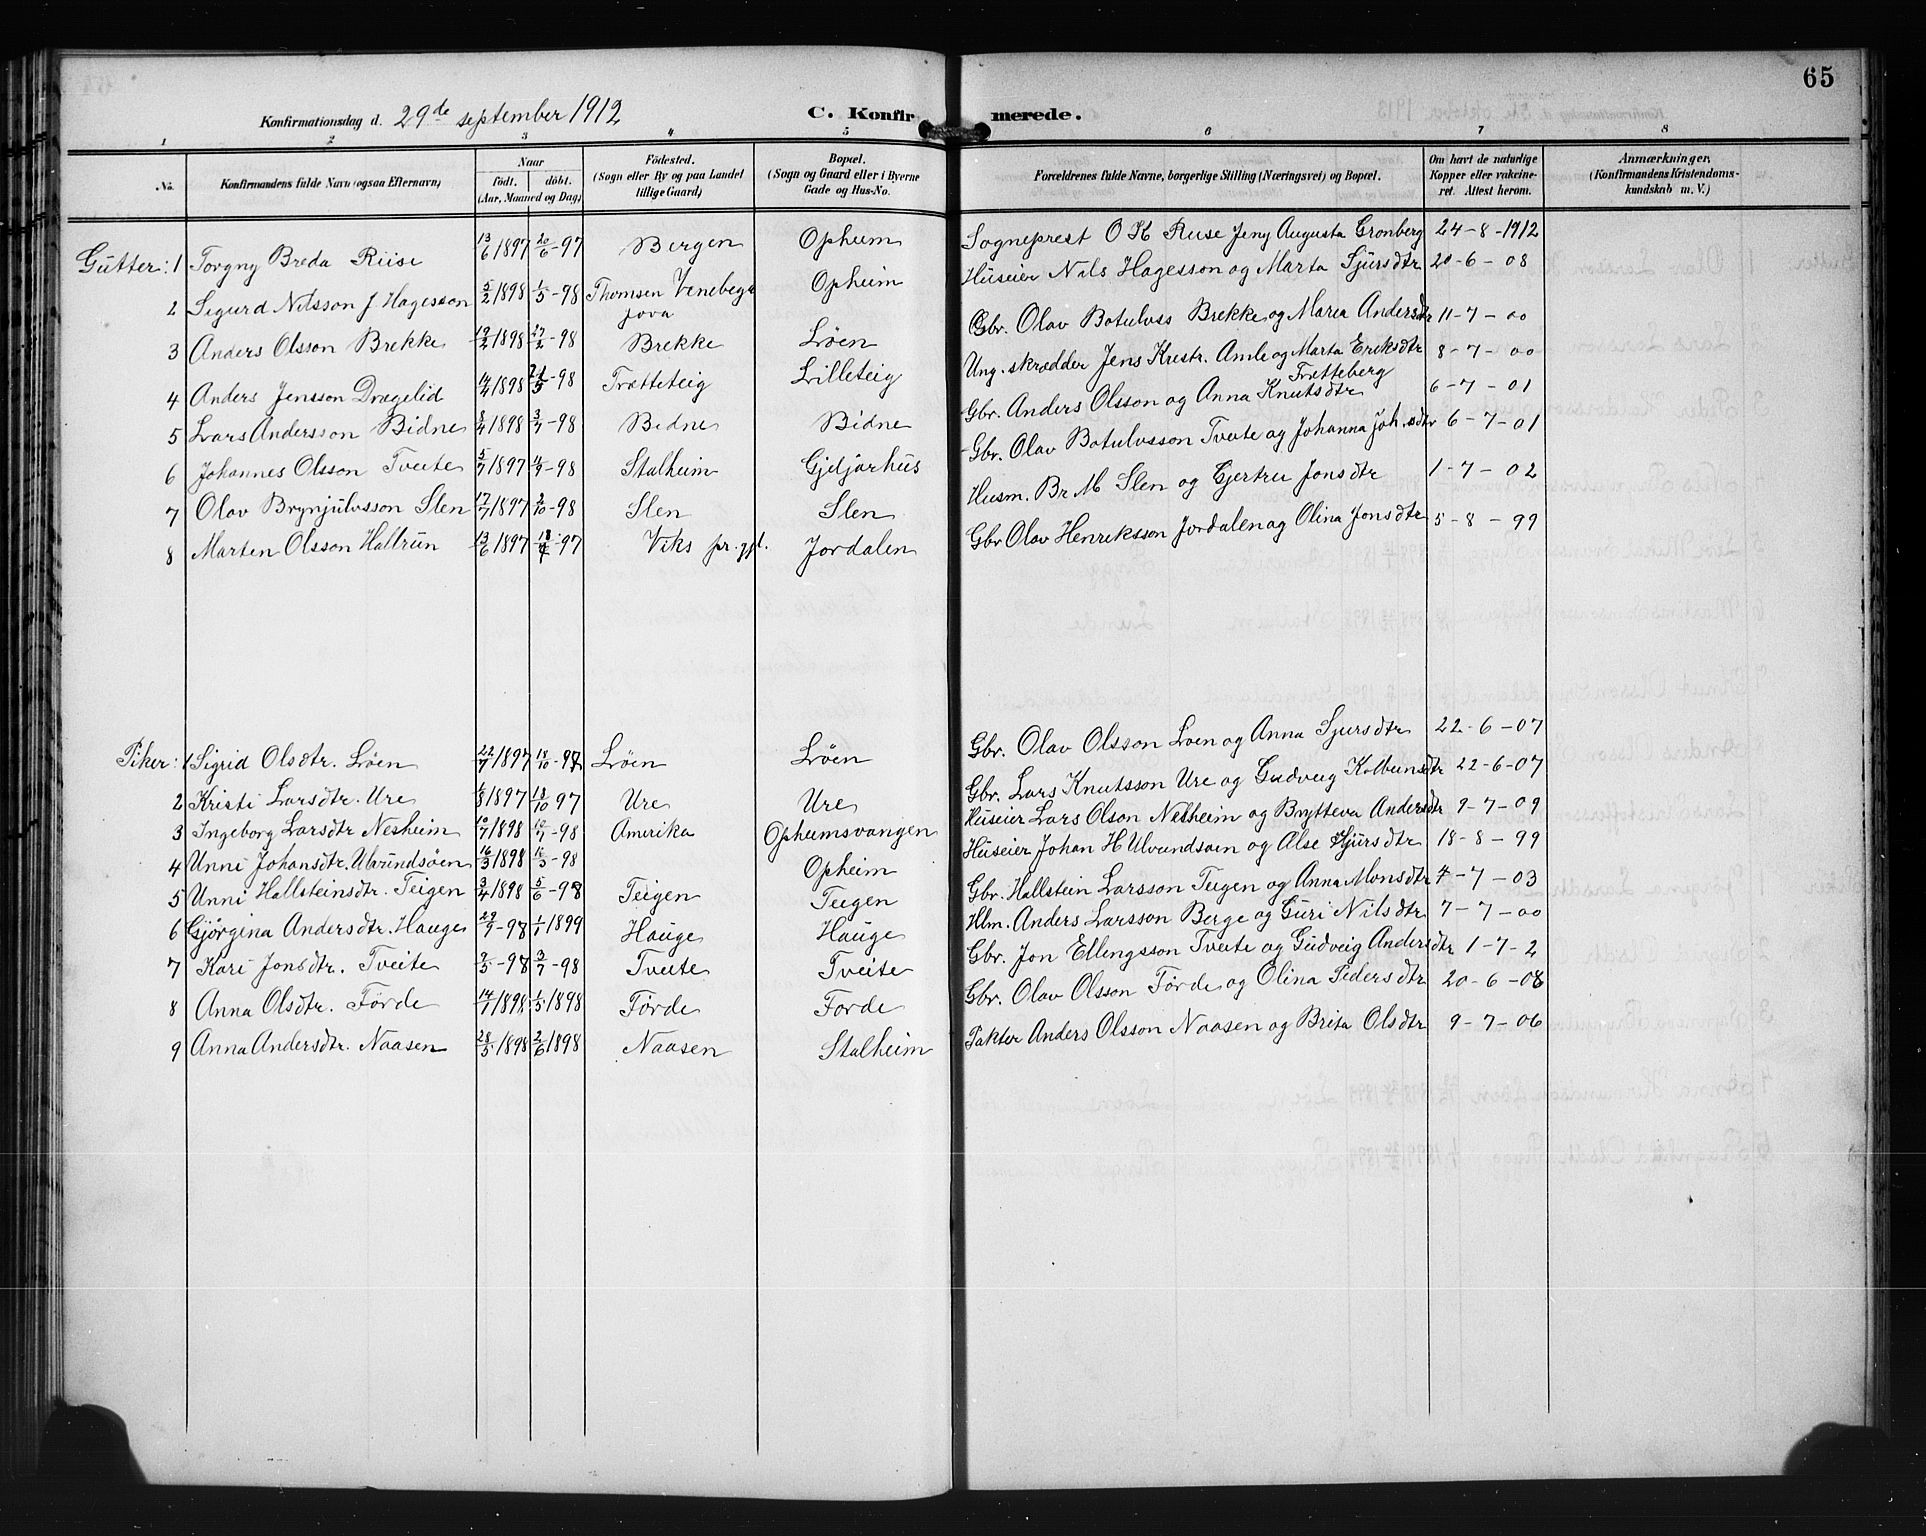 65
Konfirmationsdag d. 29de september 1912 C. Konfirmerede.
1 2 3 4 5 6 7 8
No. Konfirmandens fulde Navn (ogsaa Efternavn) Naar født. døbt. (Aar, Maaned og Dag) Fødested. (Sogn eller By og paa Landet tillige Gaard) Bopæl. (Sogn og Gaard eller i Byerne Gade og Hus-No. Forældrenes fulde Navne, borgerlige Stilling (Næringsvei) og Bopæl. Om havt de naturlige Kopper eller vakcineret. Attest herom. Anmærkninger. (Konfirmandens Kristendomskundskab m. V.)
Gutter: 1 Torgny Breda Riise 13/6 1897 20/6-97 Bergen Opheim Sogneprest O K Riise Jeny Augusta Gronberg 24-8-1912
2 Sigurd Nilsson Hagesson 5/2 1898 1/5-98 Jova Opheim Huseier Nils Hagesson og Marta Sjursdtr 20-6-08
3 Anders Olsson Brekke 1898 -98 Brekke Løen Gbr. Olav Botulvss Brekke og Maria Andersdtr 11-7-00
4 Anders Jensson Drægelid 1898 -98 Trætteteig Lilleteig Ung. skrædder Jens Krestr. Amle og Marta Eriksdtr Trætteberg 8-7-00
5 Lars Andersson Bidne 8/4 1898 3/7-98 Bidne Bidne Gbr. Anders Olsson og Anna Knutsdtr 6-7-01
6 Johannes Olsson Tveite 5/7 1897 -98 Stalheim Gjeljarhus Gbr. Olav Botulvsson Tveite og Johanna Joh.sdtr 6-7-01
7 Olav Brynjulvsson Slen 17/7 1897 2/10-98 Slen Slen Husm. Br M Slen og Gjertru Jonsdtr 1-7-02
8 Marten Olsson Hallrun 13/6 1897 -97 Viks pr.gjl. Jordalen Gbr Olav Henriksson Jordalen og Olina Jonsdtr 5-8-99
Piker: 1 Sigrid Olsdtr. Løen 22/7 1897 18/10-97 Løen Løen Gbr. Olav Olsson Løen og Anna Sjursdtr 22-6-07
2 Kristi Larsdtr. Ure 1897 18/10 97 Ure Ure Gbr. Lars Knutsson Ure og Gudveig Kolbeinsdtr 22-6-07
3 Ingeborg Larsdtr Nesheim 10/7 1898 10/7-98 Amerika Opheimsvangen Huseier Lars Olson Nesheim og Brytteva Andersdtr 9-7-09
4 Unni Johansdtr. Ulvundsøen 16/3 1898 -98 Opheim Huseier Johan H Ulvundsøin og Alse Sjursdtr 18-8-99
5 Unni Hallsteinsdtr. Teigen 3/4 1898 5/6-98 Teigen Teigen Gbr. Hallstein Larsson Teigen og Anna Monsdtr 4-7-03
6 Gjørgina Andersdtr. Hauge 29/9-98 1/1 1899 Hauge Hauge Hlm. Anders Larsson Berge og Guri Nilsdtr 7-7-00
7 Kari Jonsdtr. Tveite 2/5-98 3/7-98 Tveite Tveite Gbr. Jon Ellengsson Tveite og Gudveig Andersdtr 1-7-2
8 Anna Olsdtr. Førde 14/1 1898 1/5 1898 Førde Førde Gbr. Olav Olsson Førde og Olina Pedersdtr 20-6-08
9 Anna Andersdtr. Naasen 28/5 1898 2/6 1898 Naasen Stalheim Fakter Anders Olsson Naasen og Brita Olsdtr 9-7-06